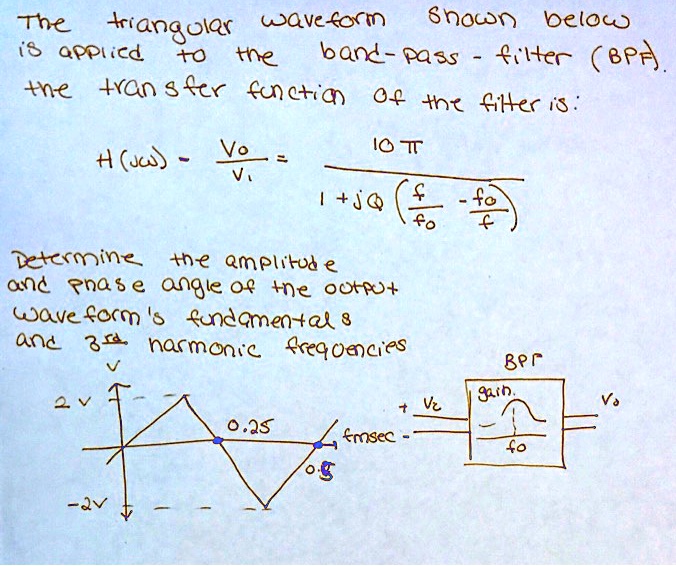 The triangular waveform shown below
is applied to the band-pass-filter (BPF).
the transfer function of the filter is:
H(jω) - Vo/Vi = 10π / 1 + jQ (f/fo - fo/f)
Determine the amplitude
and phase angle of the output
waveform's fundamental &
and 3rd harmonic frequencies
V
2v
0.25
tmsec
0.5
-2v
BPF
gain
+ Vi
-
Vo
fo